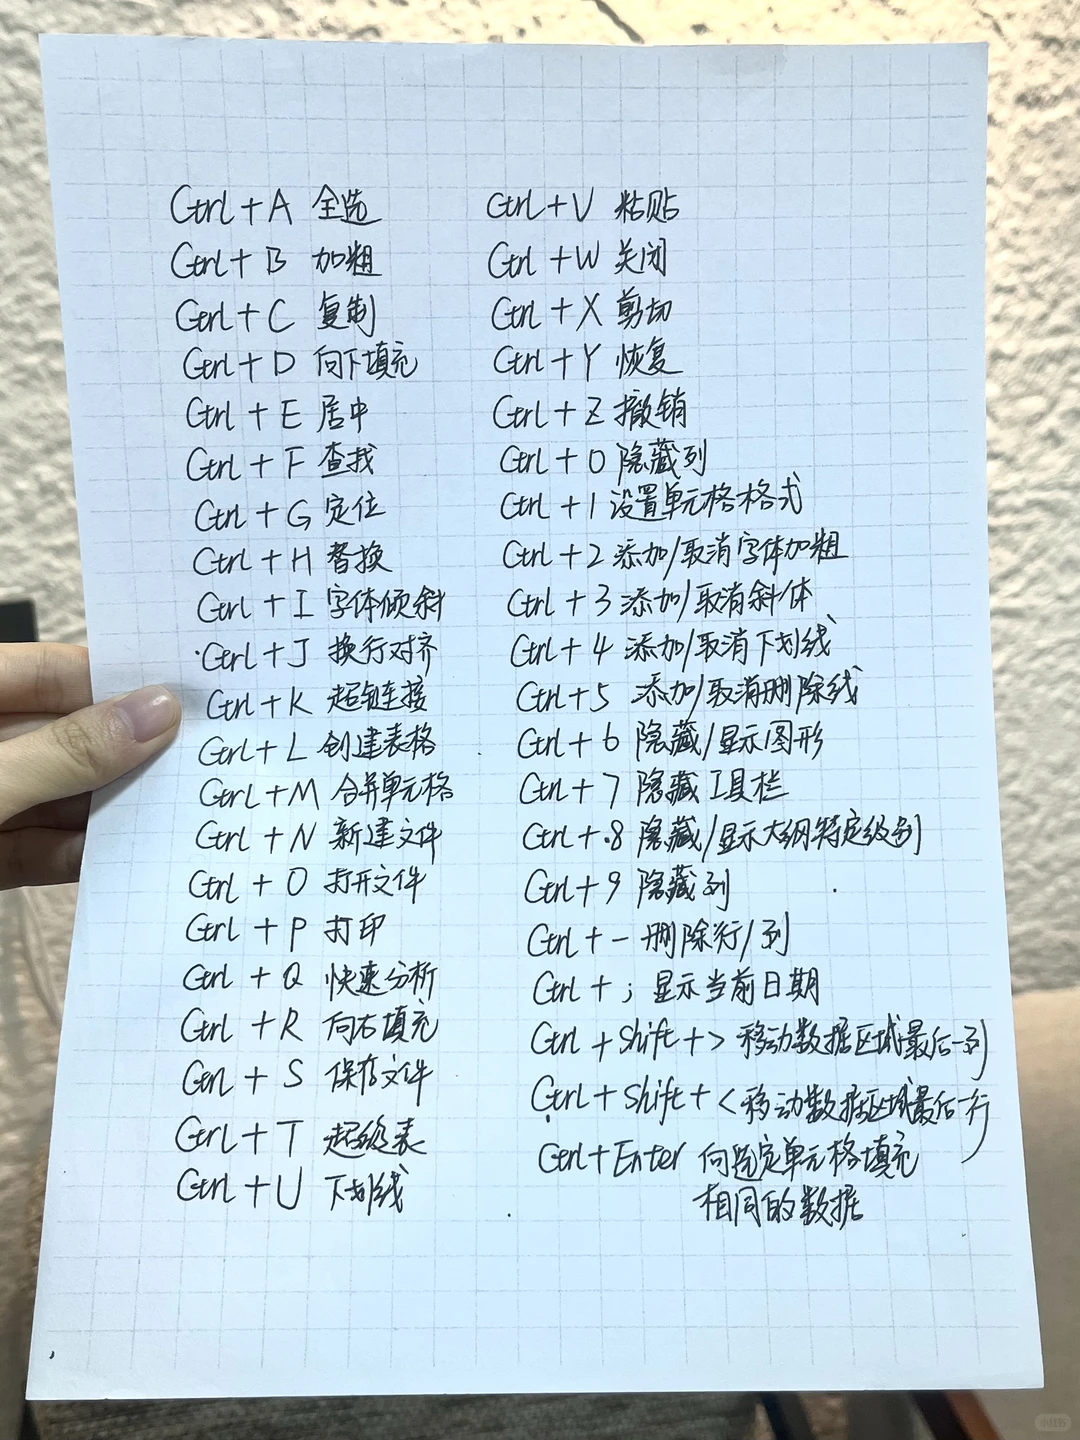 Ctrl+A 全选
Ctrl+B 加粗
Ctrl+C 复制
Ctrl+D 向下填充
Ctrl+E 居中
Ctrl+F 查找
Ctrl+G 定位
Ctrl+H 替换
Ctrl+I 字体倾斜
Ctrl+J 换行对齐
Ctrl+K 超链接
Ctrl+L 创建表格
Ctrl+M 合并单元格
Ctrl+N 新建文件
Ctrl+O 打开文件
Ctrl+P 打印
Ctrl+Q 快速分析
Ctrl+R 向右填充
Ctrl+S 保存文件
Ctrl+T 超级表
Ctrl+U 下划线
Ctrl+V 粘贴
Ctrl+W 关闭
Ctrl+X 剪切
Ctrl+Y 恢复
Ctrl+Z 撤销
Ctrl+0 隐藏列
Ctrl+1 设置单元格格式
Ctrl+2 添加/取消字体加粗
Ctrl+3 添加/取消斜体
Ctrl+4 添加/取消下划线
Ctrl+5 添加/取消删除线
Ctrl+6 隐藏/显示图形
Ctrl+7 隐藏工具栏
Ctrl+8 隐藏/显示大纲特定级别
Ctrl+9 隐藏列
Ctrl+- 删除行/列
Ctrl+; 显示当前日期
Ctrl+Shift+> 移动数据区域最后一列
Ctrl+Shift+< 移动数据区域最后一行
Ctrl+Enter 向选定单元格填充
相同的数据
小红书